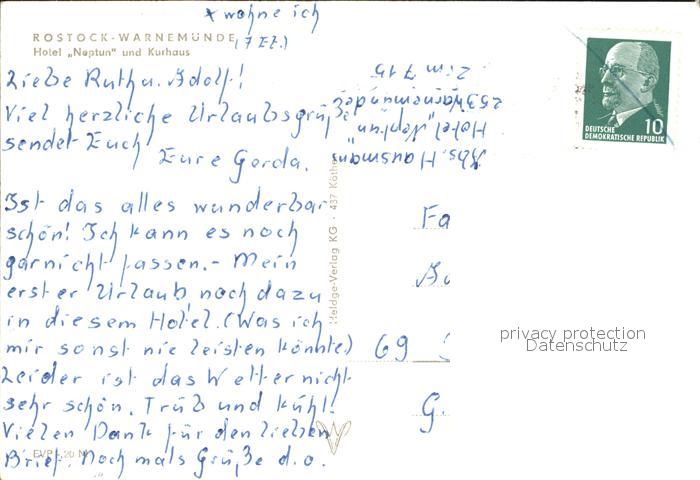 x wohne ich
ROSTOCK-WARNEMÜNDE
(7 Et.)
Hotel „Neptun" und Kurhaus
Liebe Ruth u. Adolf!
Viel herzliche Urlaubsgrüße
sendet Euch
Eure Gerda.
Ist das alles wunderbar
schön! Ich kann es noch
garnicht fassen.- Mein
erster Urlaub, noch dazu
in diesem Hotel. (Was ich
mir sonst nie leisten könnte)
Leider ist das Wetter nicht
sehr schön. Trüb und kühl!
Vielen Dank für den lieben
Brief. Noch mals Grüße d.o.
EVP
Abs. Hausmann
Hotel „Neptun"
253 Warnemünde
Zim 715
-Verlag KG · 437 Köthen
DEUTSCHE 10
DEMOKRATISCHE REPUBLIK
Fa
69
G.
privacy protection
Datenschutz